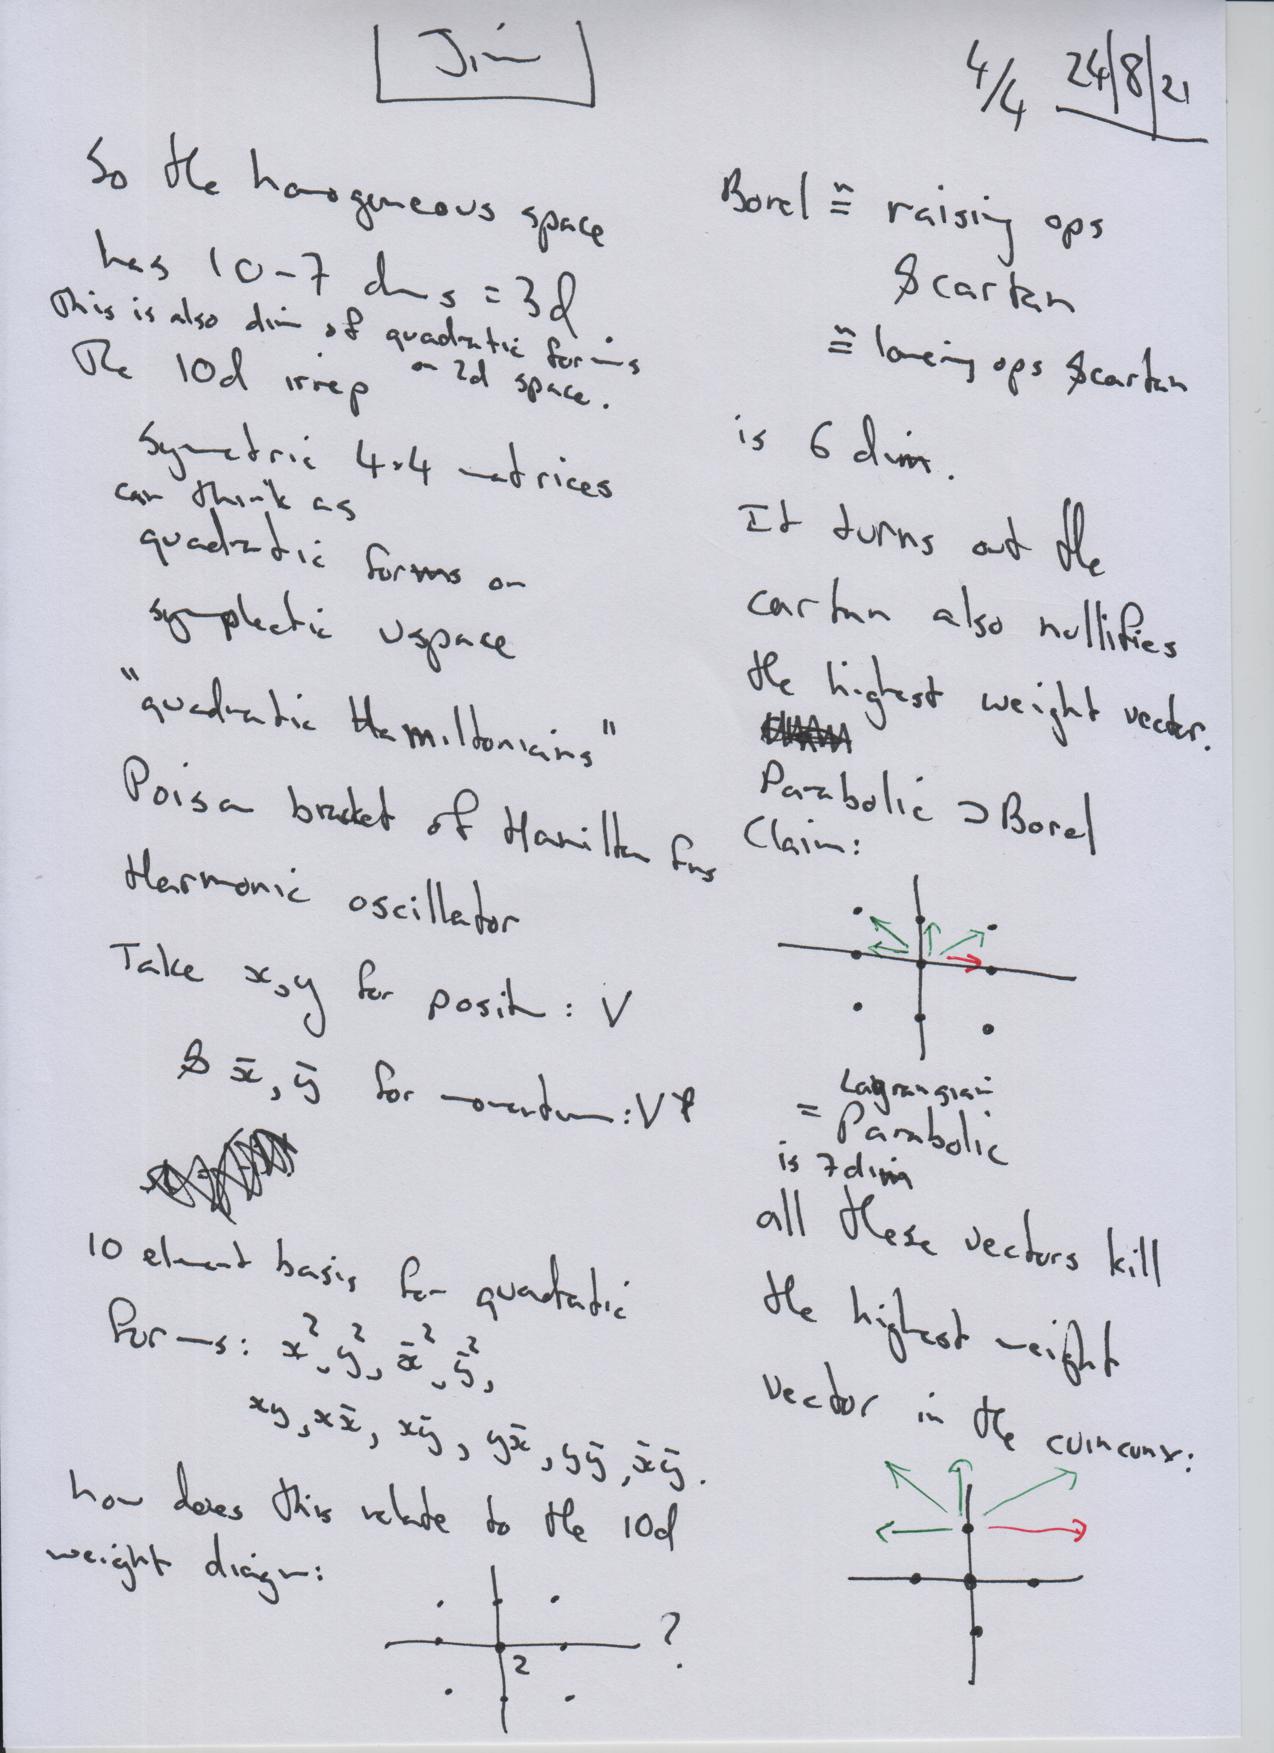 Jim
4/4 24/8/21
So the homogeneous space
has 10-7 dims = 3d
This is also dim of quadratic forms
on 2d space.
The 10d irrep
Symmetric 4×4 matrices
can think as
quadratic forms on
symplectic vspace
"quadratic Hamiltonians"
Poison bracket of Hamilton fns
Harmonic oscillator
Take x,y for posit: V
& x̄, ȳ for momentum: V*
10 element basis for quadratic
forms: x², y², x̄², ȳ²,
xy, xx̄, xȳ, yx̄, yȳ, x̄ȳ.
how does this relate to the 10d
weight diagm:
2
?
Borel ≅ raising ops
& cartan
≅ lowering ops & cartan
is 6 dim.
It turns out the
cartan also nullifies
the highest weight vector.
Parabolic ⊃ Borel
Claim:
= Lagrangian
Parabolic
is 7 dim
all these vectors kill
the highest weight
vector in the cuincunx: